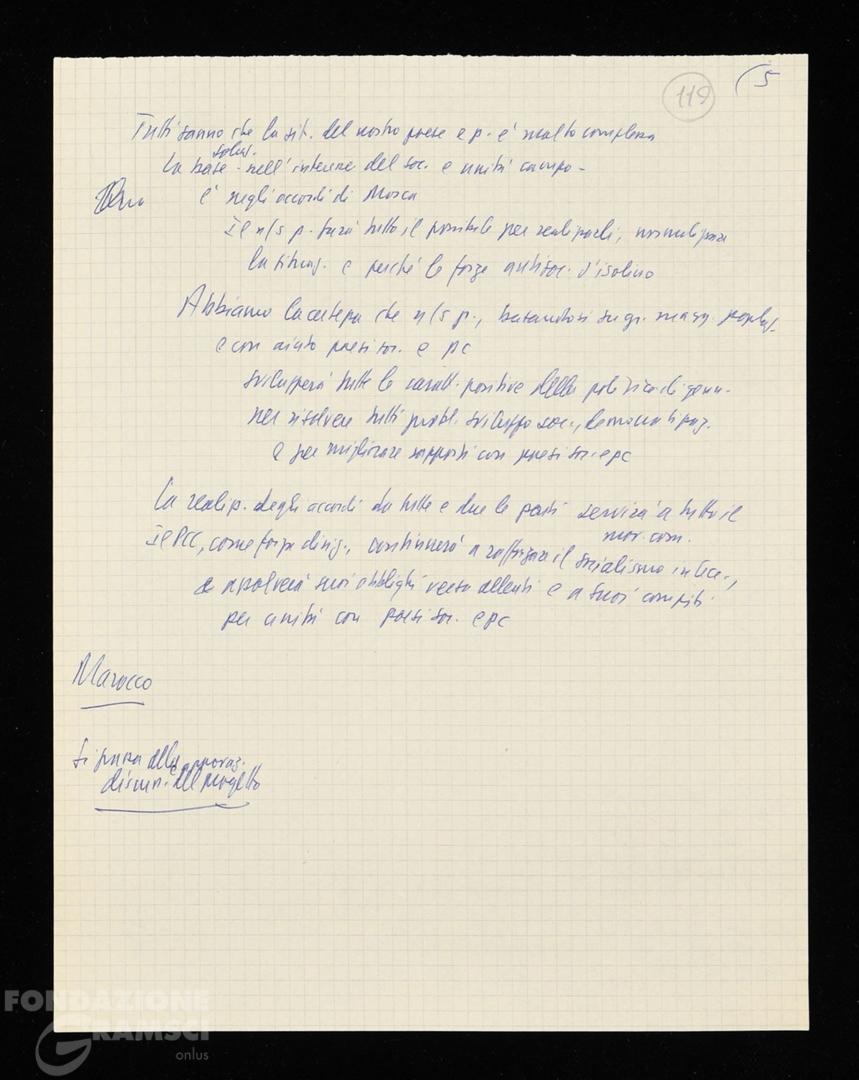 119 (5
Tutti sanno che la sit. del nostro paese e p. è molto complessa
soluz.
La base nell'interesse del soc. e unità campo -
è negli accordi di Mosca
Il n/s p. farà tutto il possibile per realizzarli, normalizzare
la situaz. e perché le forze antisoc. s'isolino
Abbiamo la certezza che n/s p., basandosi su gr. mass. popolaz.
e con aiuto paesi soc. e pc
svilupperà tutte le caratt. positive della politica di genn.
per risolvere tutti probl. sviluppo soc., democratizzaz.
e per migliorare rapporti con paesi soc. e pc
La realizz. degli accordi da tutte e due le parti servirà a tutto il
mov. com.
Il PCC, come forza dirig., continuerà a rafforzare il socialismo in Cec.,
assolverà suoi obblighi verso alleati e a suoi compiti
per unità con paesi soc. e pc
Marocco
Si passa alla
discuss. del progetto
FONDAZIONE
GRAMSCI
onlus